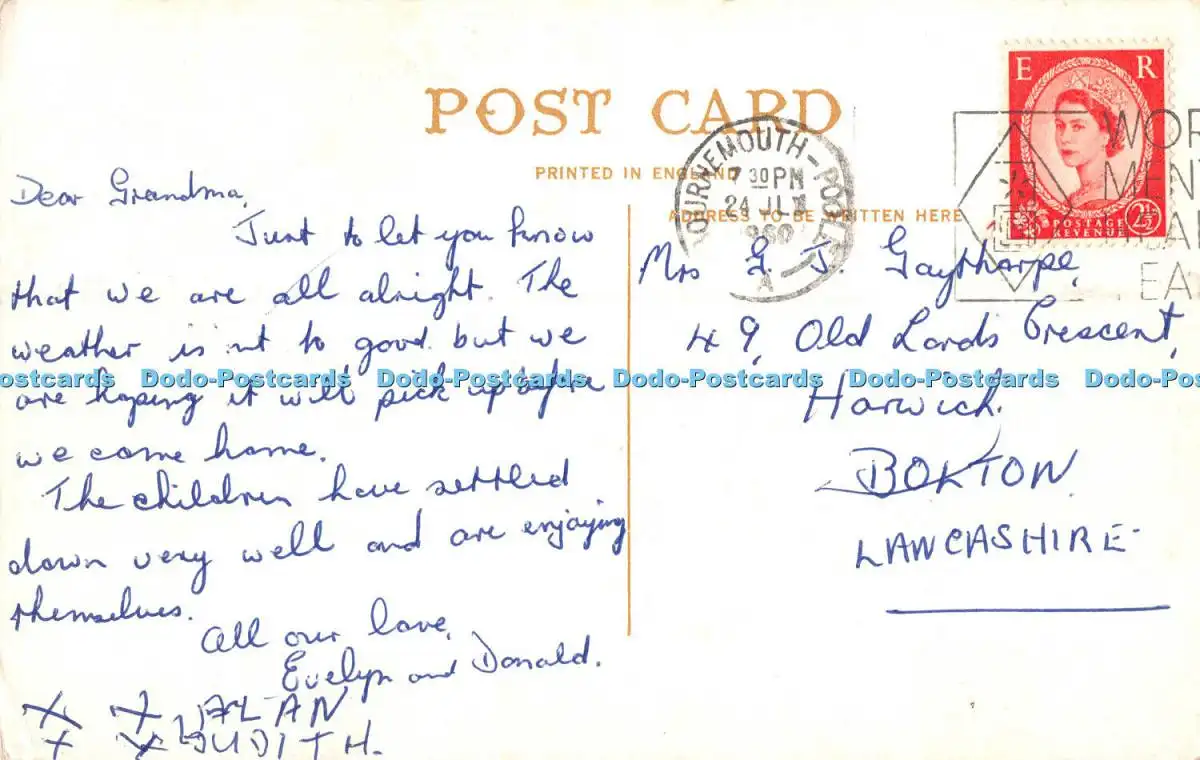 POST CARD
PRINTED IN ENGLAND
ADDRESS TO BE WRITTEN HERE
Dear Grandma,
Just to let you know
that we are all alright. The
weather is nt to good but we
are hoping it will pick up before
we come home.
The children have settled
down very well and are enjoying
themselves.
All our love,
Evelyn and Donald.
X X ALAN
X X JUDITH.
BOURNEMOUTH-POOLE
7 30 PM
24 JLY
1960
A
E R
POSTAGE
REVENUE
2½
WOR
MEN
EA
Mrs G. J. Gaythorpe,
49, Old Lords Crescent,
Horwich.
BOLTON
LANCASHIRE-
Dodo-Postcards Dodo-Postcards Dodo-Postcards Dodo-Postcards Dodo-Postcards